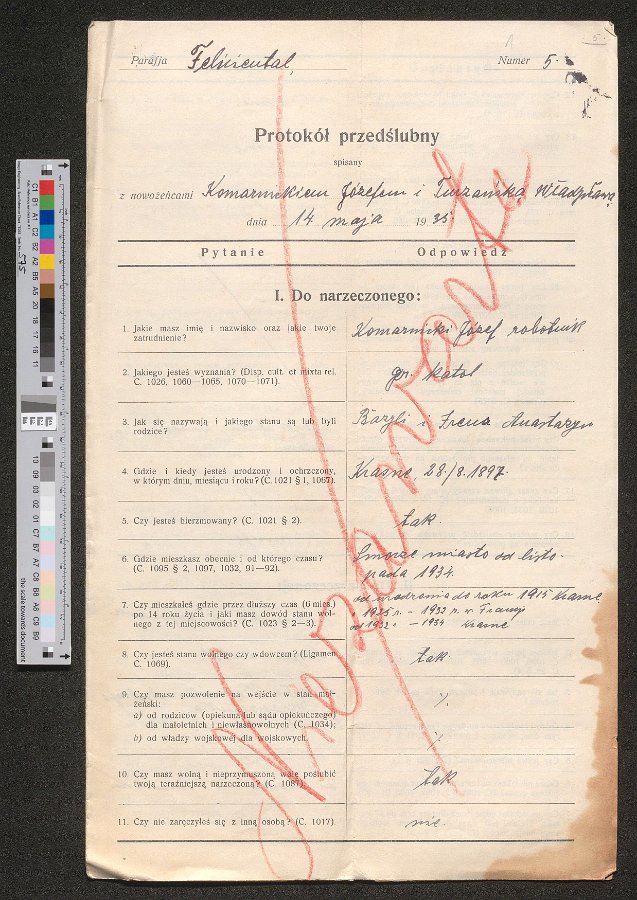 5.
Parafja Feliziental Numer 5.
Protokół przedślubny
spisany
z nowożeńcami Komarnickiem Józefem i Turzańską Władysławą
dnia 14 maja 1935
Pytanie Odpowiedź
I. Do narzeczonego:
1. Jakie masz imię i nazwisko oraz jakie twoje
zatrudnienie?
Komarnicki Józef robotnik
2. Jakiego jesteś wyznania? (Disp. cult. et mixta rel.
C. 1026, 1060—1065, 1070—1071).
gr. katol
3. Jak się nazywają i jakiego stanu są lub byli
rodzice?
Bazyli i Irena Anastazya
4. Gdzie i kiedy jesteś urodzony i ochrzczony,
w którym dniu, miesiącu i roku? (C. 1021 § 1, 1067).
Krasne, 28./8. 1897.
5. Czy jesteś bierzmowany? (C. 1021 § 2).
tak.
6. Gdzie mieszkasz obecnie i od którego czasu?
(C. 1095 § 2, 1097, 1032, 91—92).
Smorze miasto od listo-
pada 1934.
7. Czy mieszkałeś gdzie przez dłuższy czas (6 mies.)
po 14 roku życia i jaki masz dowód stanu wol-
nego z tej miejscowości? (C. 1023 § 2—3).
od urodzenia do roku 1915 Krasne
1925 r. - 1932 r. w Francji
od 1932 r. - 1934 Krasne
8. Czy jesteś stanu wolnego czy wdowcem? (Ligamen
C. 1069).
tak.
9. Czy masz pozwolenie na wejście w stan mał-
żeński:
a) od rodziców (opiekuna lub sądu opiekuńczego)
dla małoletnich i niewłasnowolnych (C. 1034);
b) od władzy wojskowej dla wojskowych.
10. Czy masz wolną i nieprzymuszoną wolę poślubić
twoją teraźniejszą narzeczoną? (C. 1087).
tak
11. Czy nie zaręczyłeś się z inną osobą? (C. 1017).
nie.
Niezawarte
the scale towards document